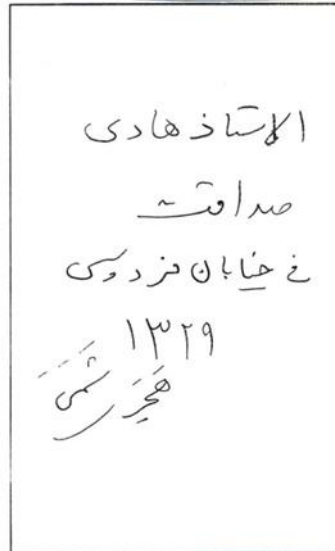 الاستاذ هادی
صداقت
خ خیابان فردوسی
۱۳۲۹
هجری شمسی